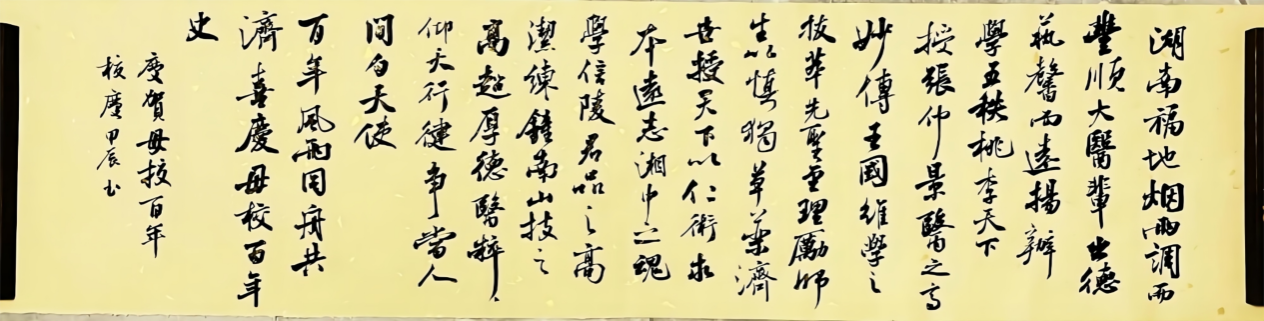 湖南福地烟雨調而
豐順大醫輩出德
藝馨而遠揚辦
學五秩桃李天下
授張仲景醫之高
妙傳王國維學之
拔萃先聖至理勵師
生以慎獨草藥濟
世授天下以仁術求
本遠志湘中之魂
學信陵君品之高
潔練鍾南山技之
高超厚德醫粹
仰天行健爭當人
間白天使
百年風雨同舟共
濟喜慶母校百年
史
慶賀母校百年
校慶甲辰書